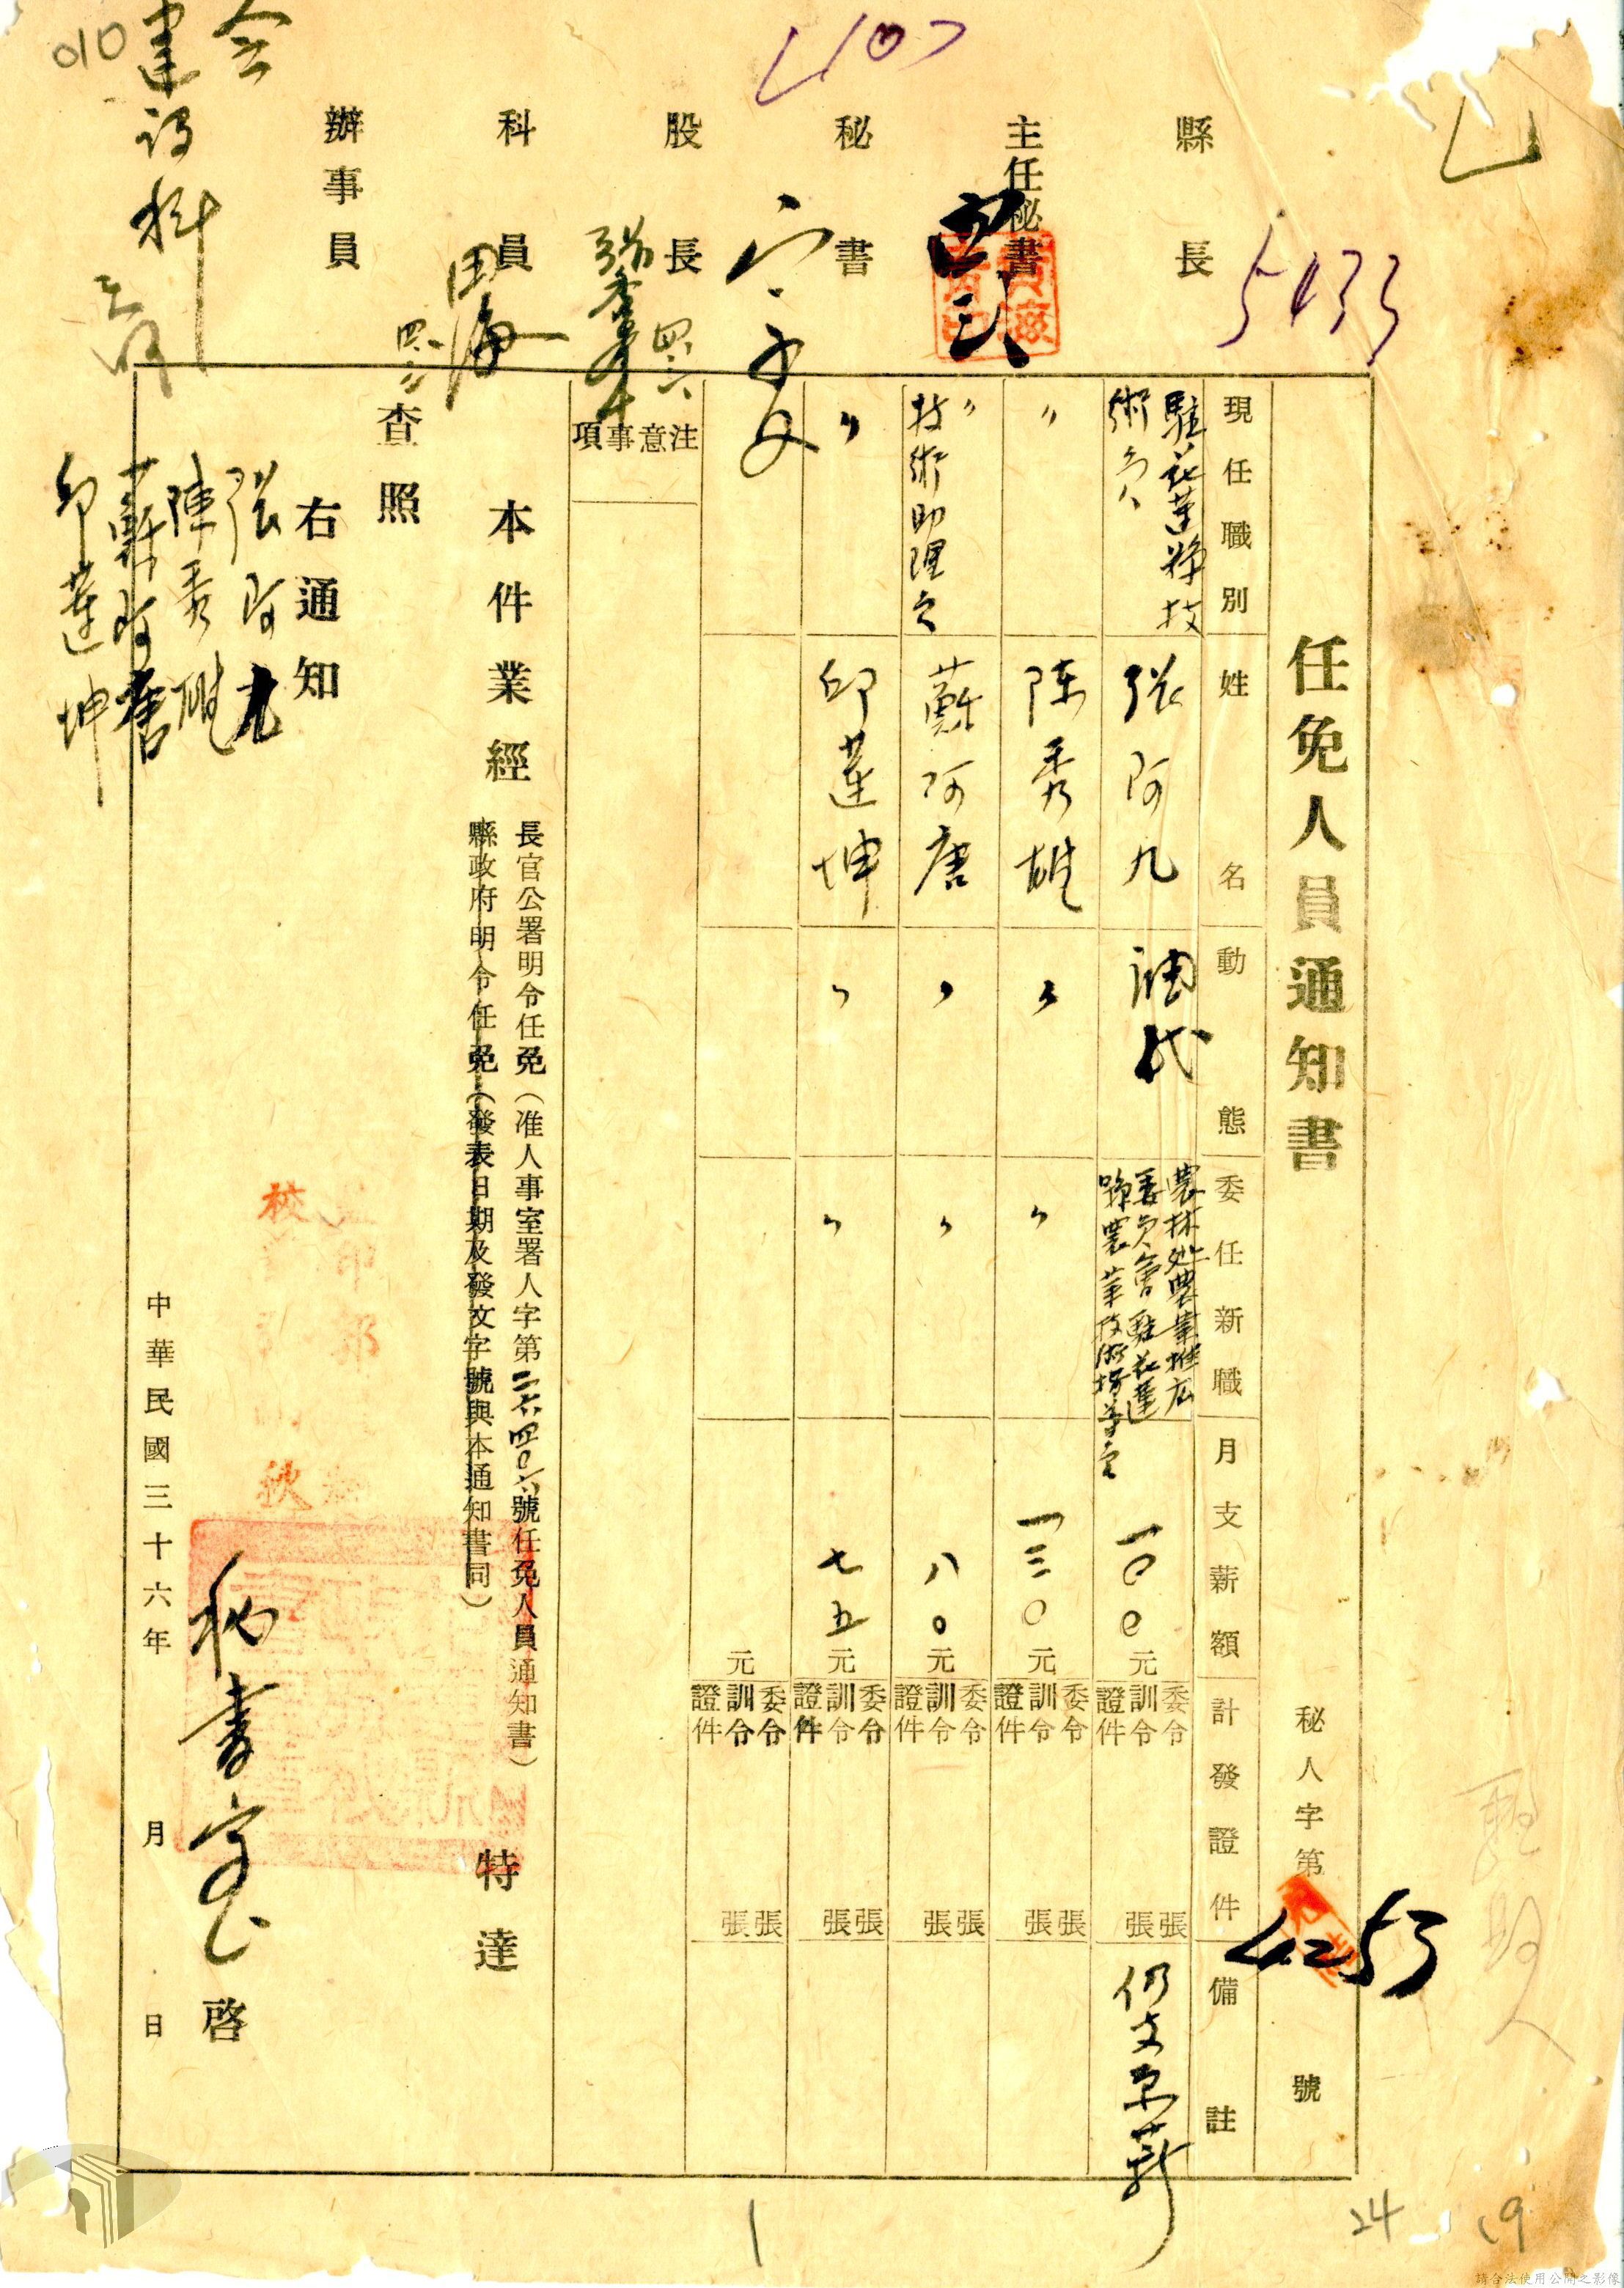 縣長
主任秘書
秘書
股長
科員
辦事員
會
建設科
010
5433
任免人員通知書
秘人字第4253號
現任職別
姓名
動態
委任新職
月支薪額
計發證件
備註
駐花蓮縣技術員
張阿九
調代
農林處農業推広委員會駐花蓮縣農業技術指導室
一〇〇元
委令 張
訓令 張
證件
仍支原薪
〃
陳秀雄
〃
〃
一三〇元
委令 張
訓令 張
證件
〃
技術助理員
蘇阿唐
〃
〃
八〇元
委令 張
訓令 張
證件
〃
邱蓮坤
〃
〃
七五元
委令 張
訓令 張
證件
元
委令 張
訓令 張
證件
注意事項
本件業經
長官公署明令任免（准人事室署人字第二六四〇六號任免人員通知書）
縣政府明令任免（發表日期及發文字號與本通知書同）
特達
查照
右通知
張阿九
陳秀雄
蘇阿唐
邱蓮坤
秘書室 啓
中華民國三十六年 月 日
校
24
19
請合法使用公開之影像